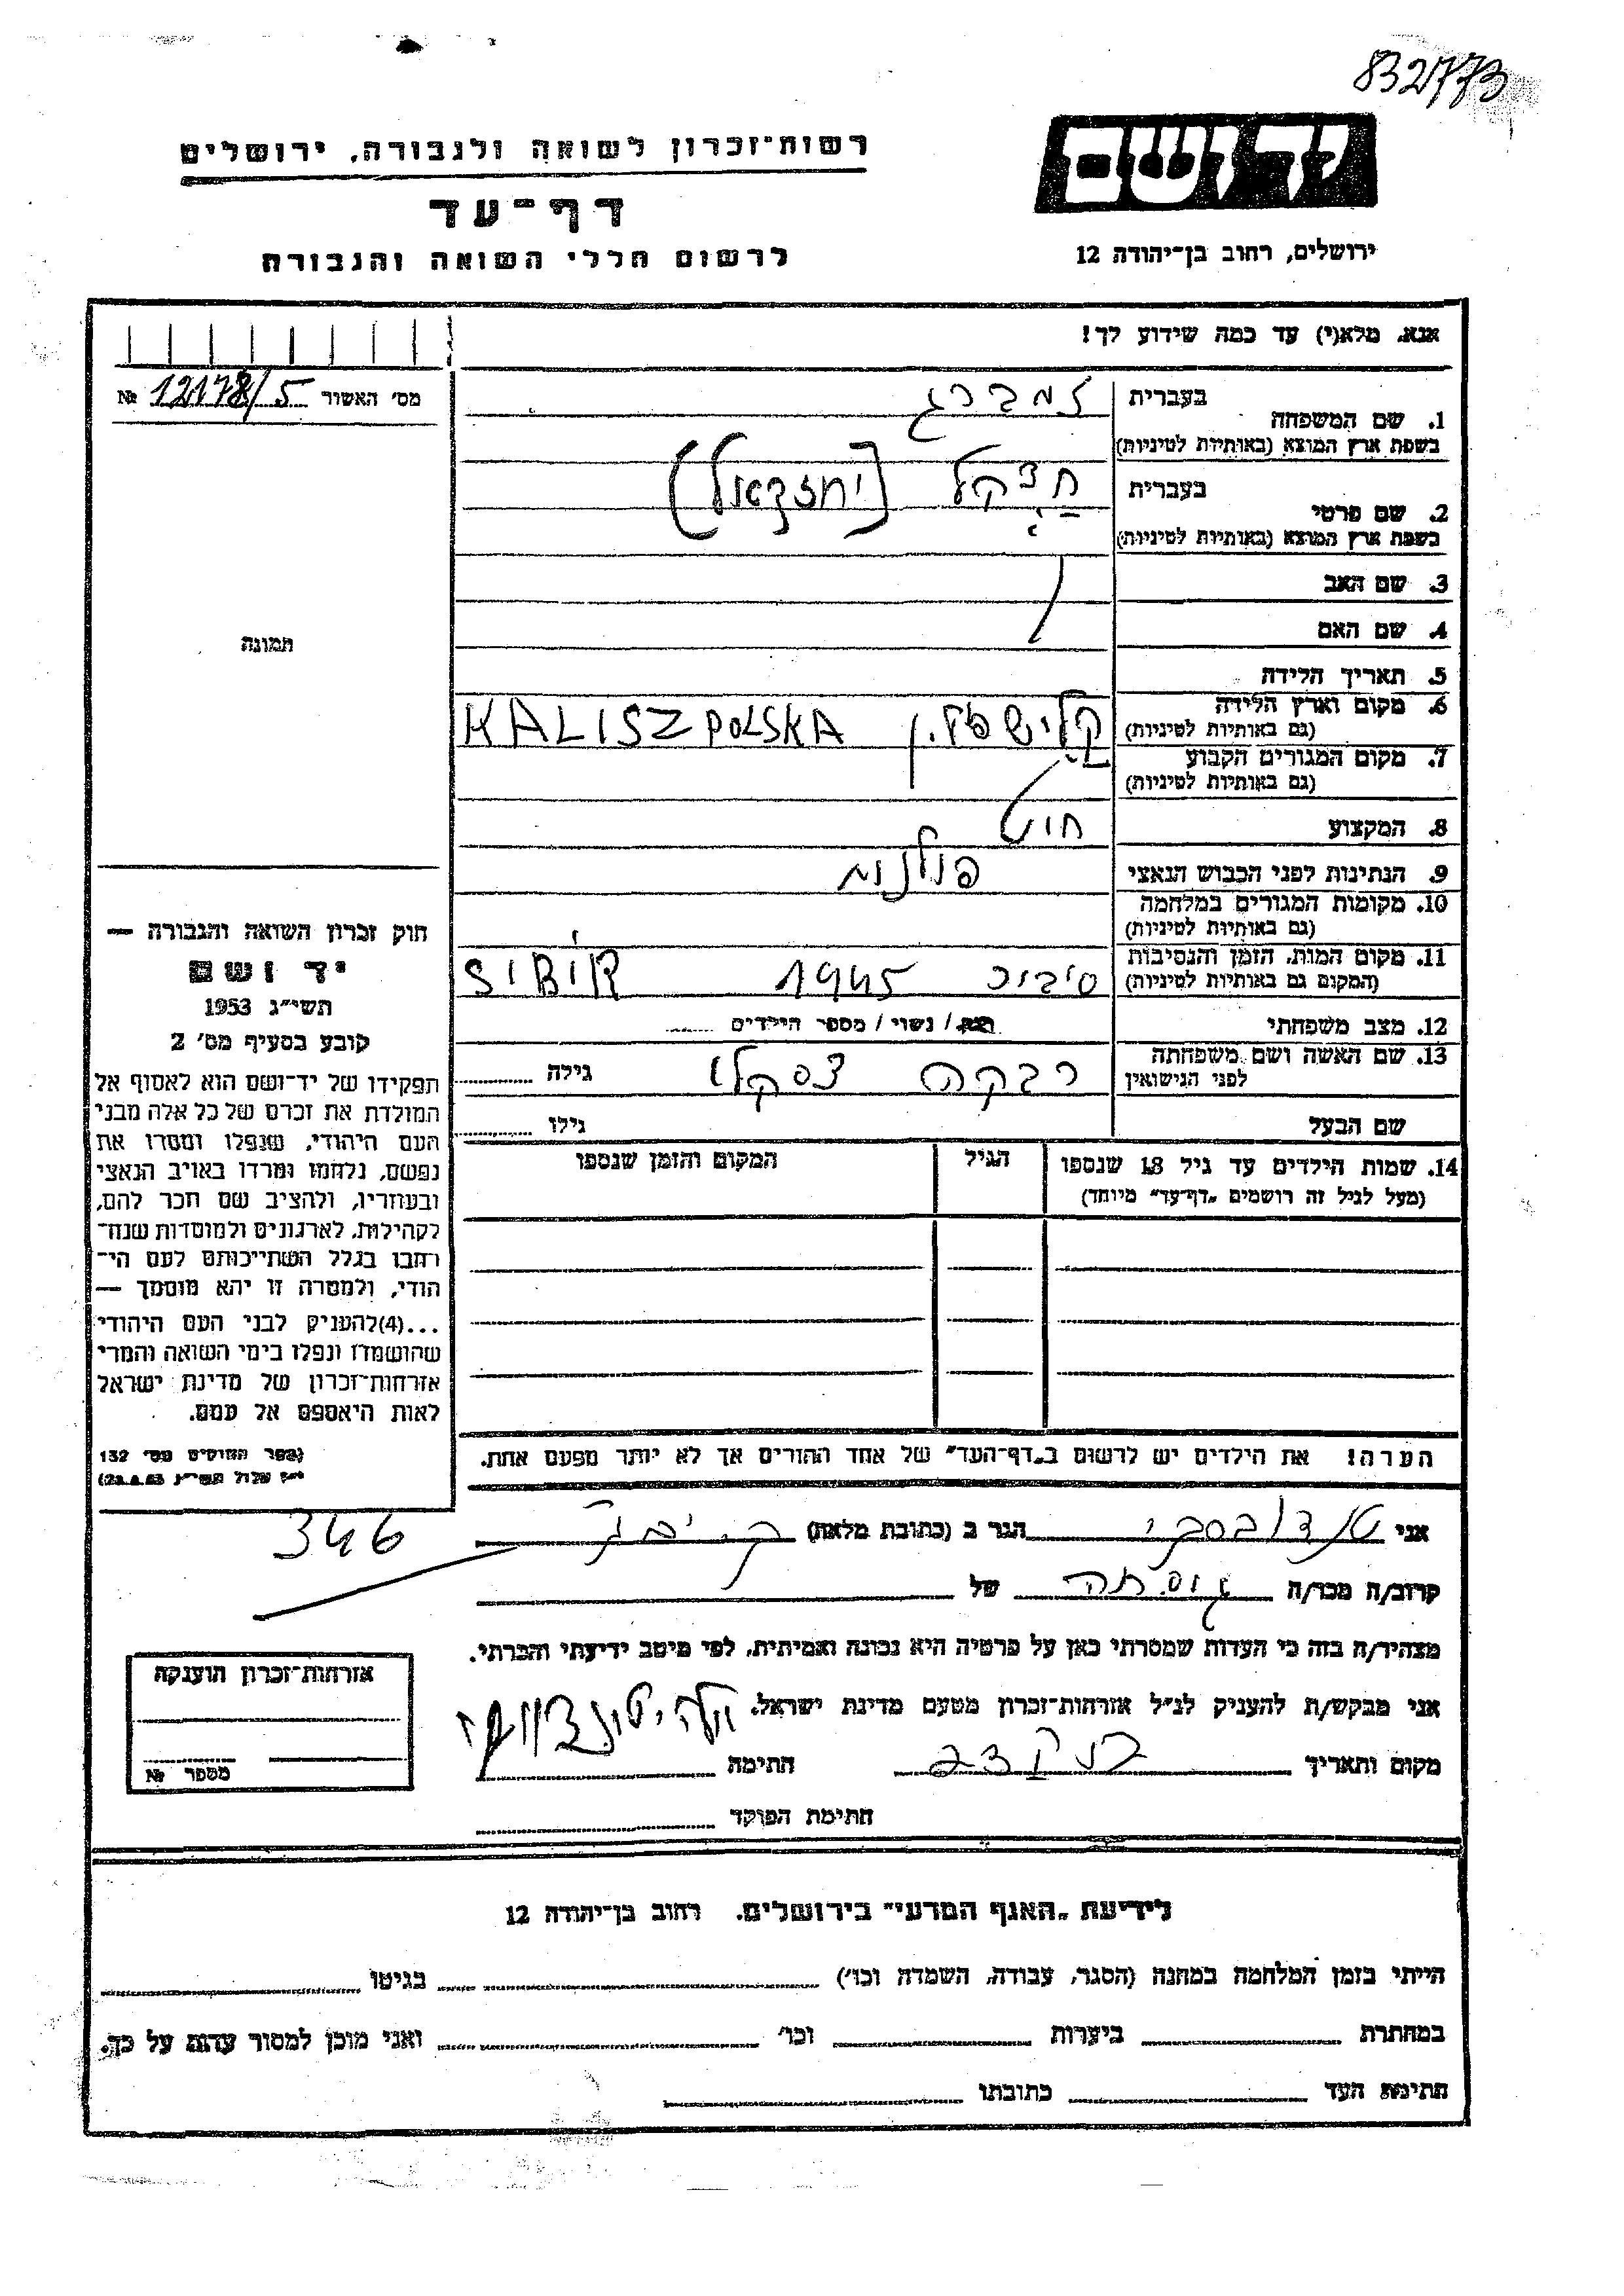 832773
רשות־זכרון לשואה ולגבורה, ירושלים
דף־עד
לרשום חללי השואה והגבורה
יד ושם
ירושלים, רחוב בן־יהודה 12
אנא, מלא(י) עד כמה שידוע לך!
מס' האשור 12178/5 №
תמונה
חוק זכרון השואה והגבורה —
יד ושם
תשי"ג 1953
קובע בסעיף מס' 2
תפקידו של יד־ושם הוא לאסוף אל
המולדת את זכרם של כל אלה מבני
העם היהודי, שנפלו ומסרו את
נפשם, נלחמו ומרדו באויב הנאצי
ובעוזריו, ולהציב שם וזכר להם,
לקהילות, לארגונים ולמוסדות שנח־
רחבו בגלל השתייכותם לעם הי־
הודי, ולמטרה זו יהא מוסמך —
...(4)להעניק לבני העם היהודי
שהושמדו ונפלו בימי השואה והמרי
אזרחות־זכרון של מדינת ישראל
לאות היאספם אל עמם.
(ספר החוקים מס' 132
1. שם המשפחה
בעברית זמברג
בשפת ארץ המוצא (באותיות לטיניות)
2. שם פרטי
בעברית חצקל (יחזקאל)
בשפת ארץ המוצא (באותיות לטיניות)
3. שם האב
4. שם האם
5. תאריך הלידה
6. מקום וארץ הלידה
(גם באותיות לטיניות) קליש פולין KALISZ POLSKA
7. מקום המגורים הקבוע
(גם באותיות לטיניות)
8. המקצוע
9. הנתינות לפני הכבוש הנאצי פולנית
10. מקומות המגורים במלחמה
(גם באותיות לטיניות)
11. מקום המות, הזמן והנסיבות
(המקום גם באותיות לטיניות) סיביר 1945 SIBIR
12. מצב משפחתי / נשוי / מספר הילדים
13. שם האשה ושם משפחתה
לפני הנישואין רבקה גילה
שם הבעל גילו
14. שמות הילדים עד גיל 18 שנספו הגיל המקום והזמן שנספו
(מעל לגיל זה רושמים "דף־עד" מיוחד)
הערה! את הילדים יש לרשום ב"דף־העד" של אחד ההורים אך לא יותר מפעם אחת.
346
אני הגר ב (כתובת מלאה)
קרוב/ה מכר/ה של
מצהיר/ה בזה כי העדות שמסרתי כאן על פרטיה היא נכונה ואמיתית, לפי מיטב ידיעתי והכרתי.
אני מבקש/ת להעניק לנ"ל אזרחות־זכרון מטעם מדינת ישראל.
מקום ותאריך חתימה
חתימת הפוקד
אזרחות־זכרון הוענקה
מספר №
לידיעת "האגף המדעי" בירושלים, רחוב בן־יהודה 12
הייתי בזמן המלחמה במחנה (הסגר, עבודה, השמדה וכו') בגיטו
במחתרת ביערות וכו' ואני מוכן למסור עדות על כך.
חתימת העד כתובתו